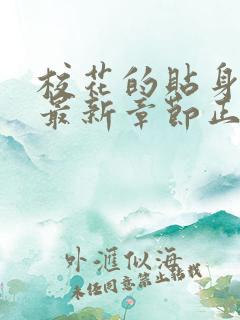 校花的貼身
最新章節正
外滙似海
未经同意禁止转载